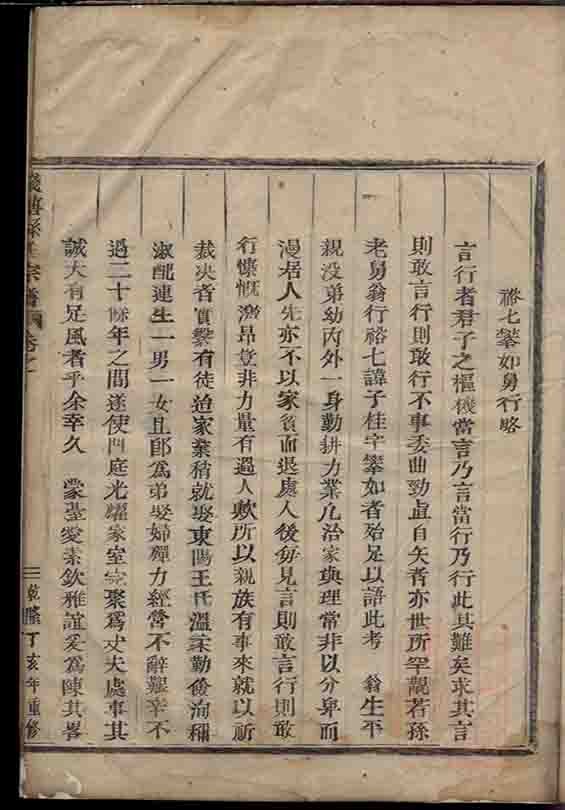 裕七攀如舅行略
言行者君子之樞機當言乃言當行乃行此其難矣求其言
則敢言行則敢行不事委曲勁直自矢者亦世所罕覯若孫
老舅翁行裕七諱子桂字攀如者殆足以語此考 翁生平
親沒弟幼內外一身勤耕力業凡治家與理常非以分卑而
漫居人先亦不以家貧而退處人後每見言則敢言行則敢
行慷慨激昂豈非力量有過人歟所以親族有事來就以祈
裁決者實繁有徒迨家業稍就娶東陽王氏溫柔勤儉洵稱
淑配連生一男一女且卽為弟娶婦殫力經營不辭艱辛不
過二十餘年之間遂使門庭光耀家室完聚為丈夫處事其
誠大有足風者乎余幸久 蒙臺愛素欽雅誼爰為陳其畧
孫氏宗譜 卷之
三 乾隆丁亥年重修